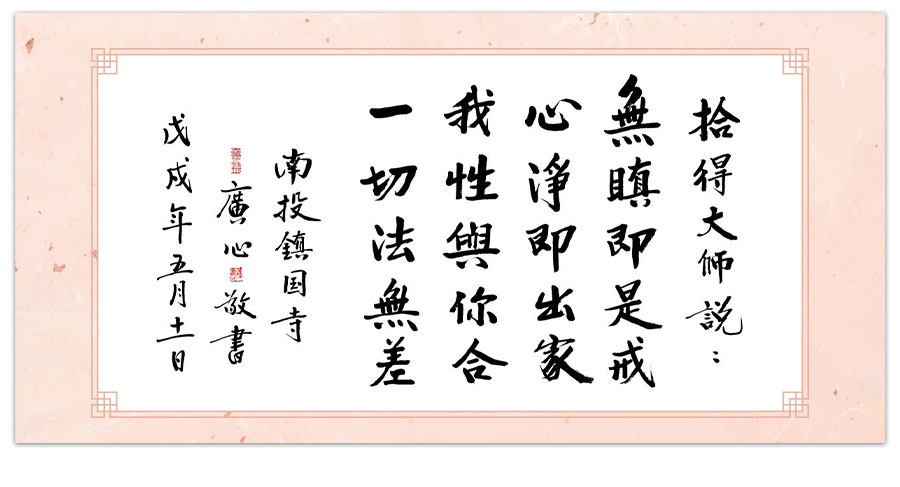 拾得大師説：
無瞋即是戒
心淨即出家
我性與你合
一切法無差
南投鎮国寺
廣心敬書
戊戌年五月十一日